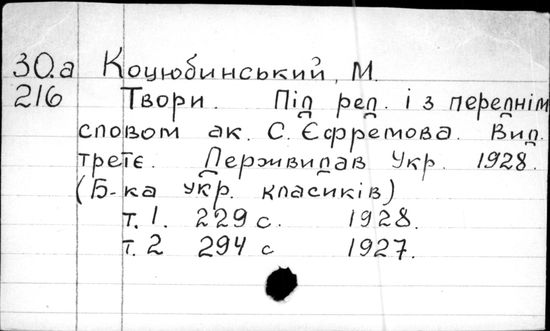 30.а Коцюбинський, М.
216 Твори. Під ред. і з переднім
словом ак. С. Єфремова. Вид.
третє. Державидав Укр. 1928.
(Б-ка укр. класиків)
т. 1. 229 с. 1928.
т. 2 294 с 1927.